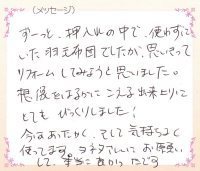 (メッセージ)
ずーっと、押入れの中で、使わずに
いた羽毛布団でしたが、思いきって
リフォームしてみようと思いました。
想像をはるかにこえる出来上りに
とてもびっくりしました！
今はあたたかく、そして気持ちよく
使ってます。ヨネタさんにお願い
して、本当に良かったです